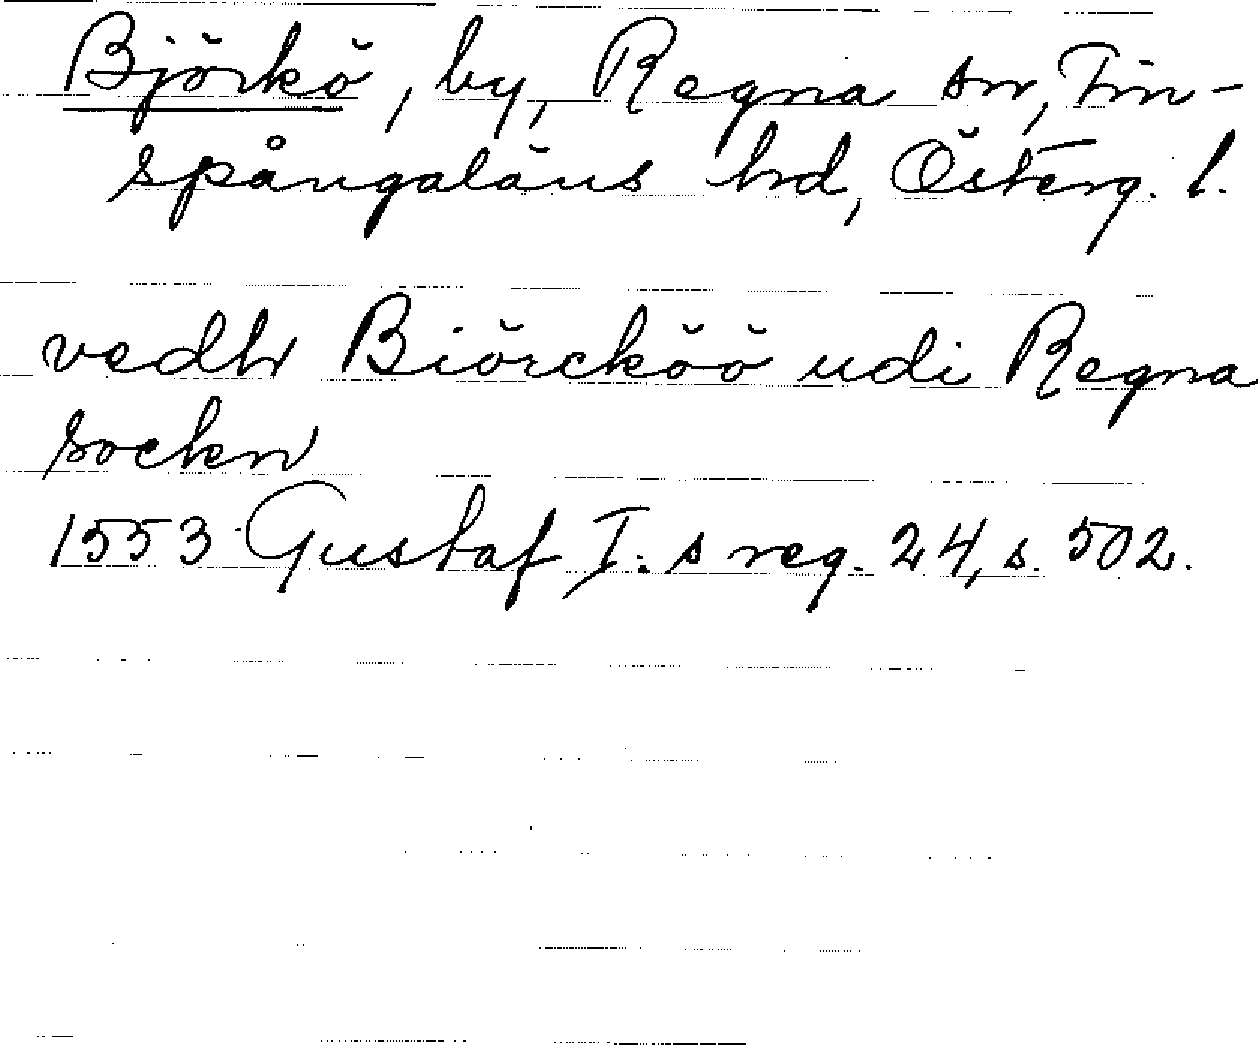 Björkö, by, Regna sn, Fin-
spångaläns hd, Österg. l.
vedh Biörcköö udi Regna
sockn
1553 Gustaf I:s reg. 24, s. 502.